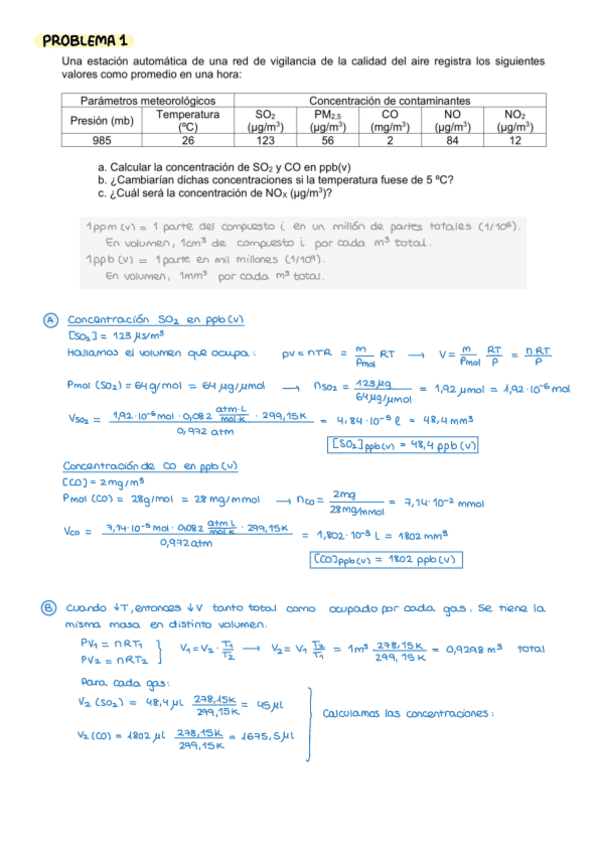 PROBLEMA 1
Una estación automática de una red de vigilancia de la calidad del aire registra los siguientes
valores como promedio en una hora:
Parámetros meteorológicos Concentración de contaminantes
Presión (mb) Temperatura (ºC) SO₂ (µg/m³) PM₂,₅ (µg/m³) CO (mg/m³) NO (µg/m³) NO₂ (µg/m³)
985 26 123 56 2 84 12
a. Calcular la concentración de SO₂ y CO en ppb(v)
b. ¿Cambiarían dichas concentraciones si la temperatura fuese de 5 ºC?
c. ¿Cuál será la concentración de NOx (µg/m³)?
1ppm (v) = 1 parte del compuesto i en un millón de partes totales (1/10⁶).
En volumen, 1cm³ de compuesto i por cada m³ total.
1ppb (v) = 1 parte en mil millones (1/10⁹).
En volumen, 1mm³ por cada m³ total.
A Concentración SO₂ en ppb(v)
[SO₂] = 123 µg/m³
Hallamos el volumen que ocupa: PV = nTR = m/Pmol RT → V = m/Pmol RT/P = nRT/P
Pmol (SO₂) = 64g/mol = 64 µg/µmol → nSO₂ = 123µg / 64µg/µmol = 1,92 µmol = 1,92·10⁻⁶ mol
VSO₂ = 1,92·10⁻⁶ mol · 0,082 atm·L/mol·K · 299,15K / 0,972 atm = 4,84·10⁻⁵ l = 48,4 mm³
[SO₂]ppb(v) = 48,4 ppb(v)
Concentración de CO en ppb(v)
[CO] = 2mg/m³
Pmol (CO) = 28g/mol = 28 mg/mmol → nCO = 2mg / 28mg/mmol = 7,14·10⁻² mmol
VCO = 7,14·10⁻⁵ mol · 0,082 atm·L/mol·K · 299,15K / 0,972atm = 1,802·10⁻³ L = 1802 mm³
[CO]ppb(v) = 1802 ppb(v)
B Cuando ↓T, entonces ↓V tanto total como ocupado por cada gas. Se tiene la
misma masa en distinto volumen.
PV₁ = nRT₁
PV₂ = nRT₂ } V₁ = V₂ · T₁/T₂ → V₂ = V₁ T₂/T₁ = 1m³ 278,15K/299,15K = 0,9298 m³ total
Para cada gas:
V₂ (SO₂) = 48,4 µl 278,15K/299,15K = 45µl
Calculamos las concentraciones:
V₂ (CO) = 1802 µl 278,15K/299,15K = 1675,5µl